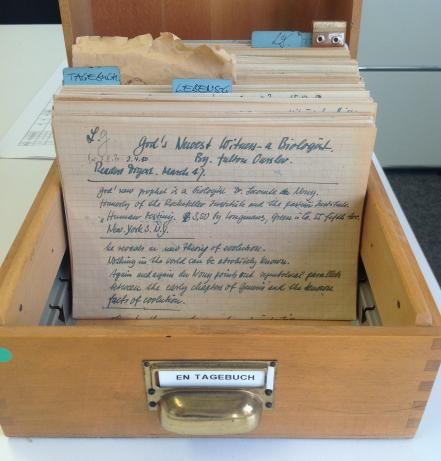 Lg
TAGEBUCH
LEBENSG
L.g
God's Newest Witness - a Biologist
By. Fulton Oursler.
Readers Digest. March 47.
god' new prophet is a biologist Dr. Lecomte du Noüy.
formerly of the Rockefeller Institute and the Institute.
Human Destiny. $ 3,50 by Longmans, Green & Co. 55 fifth Av.
New York 3. N.Y.
he reveals a new theory of evolution.
Nothing in the world can be absolutely known.
Again and again du Noüy points out parallels
between the early chapters of Genesis and the known
facts of evolution.
EN TAGEBUCH